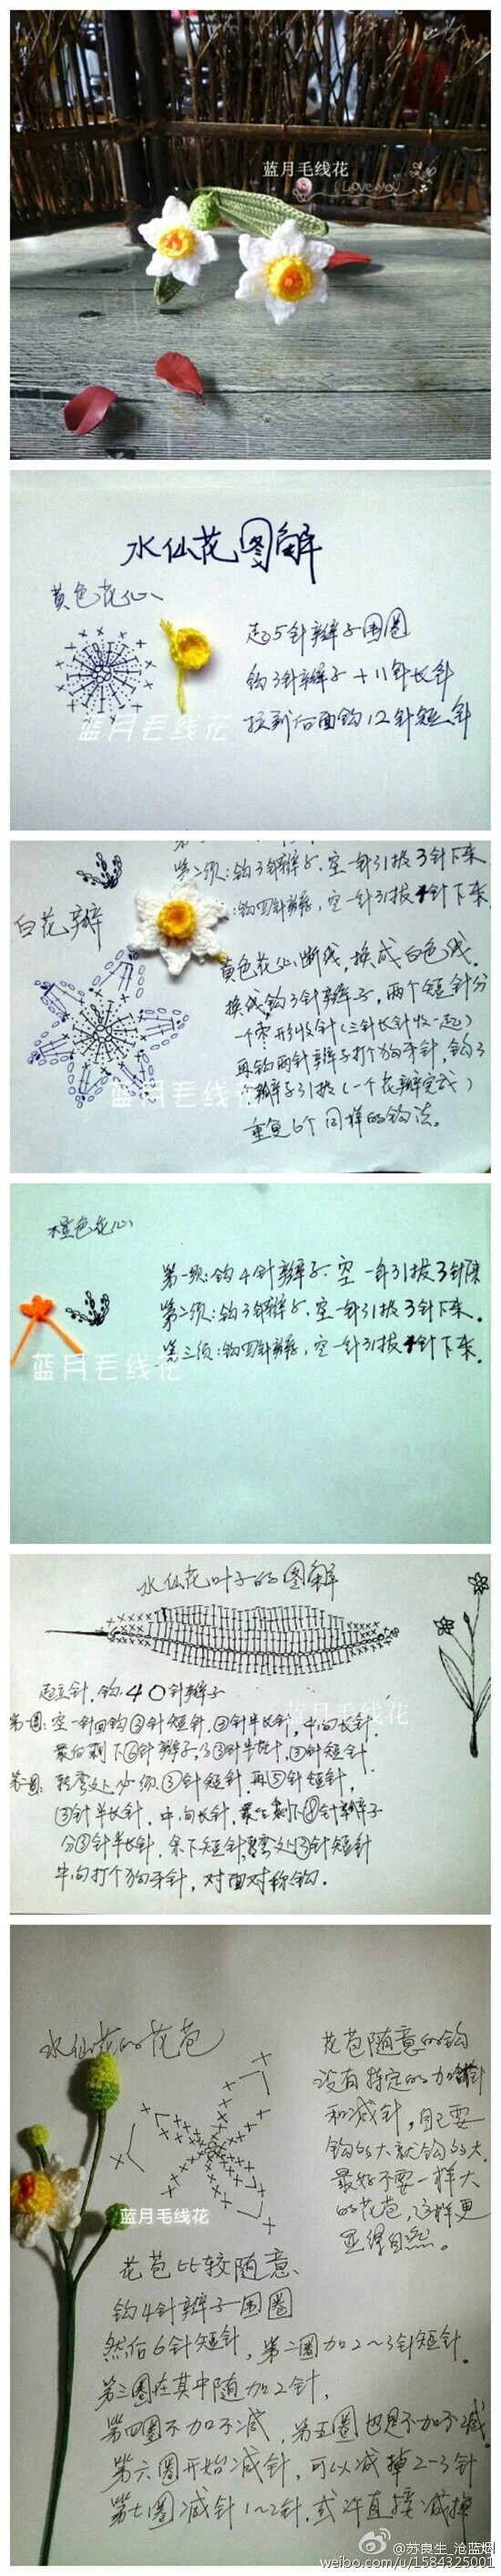 蓝月毛线花
Love you
水仙花图解
黄色花心
起5针辫子围圈
钩3针辫子+11针长针
拉到后面钩12针短针
蓝月毛线花
第二须:钩3针辫子.空一针引拔3针下来
:钩四针辫,空一针引拔4针下来
白花瓣
黄色花心断线,换成白色线.
换线钩3针辫子,两个短针分
一个枣形收针(三针长针收一起)
再钩两针辫子打个狗牙针,钩3
个辫子引拔(一个花瓣完成)
重复6个同样的钩法。
蓝月毛线花
橙色花心
第一须:钩4针辫子.空一针引拔3针下来
第二须:钩3针辫子.空一针引拔3针下来.
第三须:钩四针辫,空一针引拔4针下来.
蓝月毛线花
水仙花叶子的图解
起立针,钩40针辫子
蓝月毛线花
第一圈:空一针回钩③针短针.③针半长针,中间长针.
最后剩下⑥针辫子.分③针半长针,③针短针
第二圈:转弯处必须③针短针.再⑤针短针,
③针半长针,中间长针,最后剩下⑧针辫子
分③针半长针.余下短针,转弯处③针短针
中间打个狗牙针,对面对称钩.
水仙花的花苞
花苞随意的钩
没有特定的加针
和减针,自己要
钩的大就钩的大.
最好不要一样大
的花苞,这样更
显得自然。
蓝月毛线花
花苞比较随意、
钩4针辫子围圈
然后6针短针,第二圈加2~3针短针.
第三圈在其中随加2针,
第四圈不加不减,第五圈也是不加不减。
第六圈开始减针,可以减掉2-3针
第七圈减针1~2针,或许直接减掉
@苏良生_沧蓝烟
weibo.com/u/1584325001